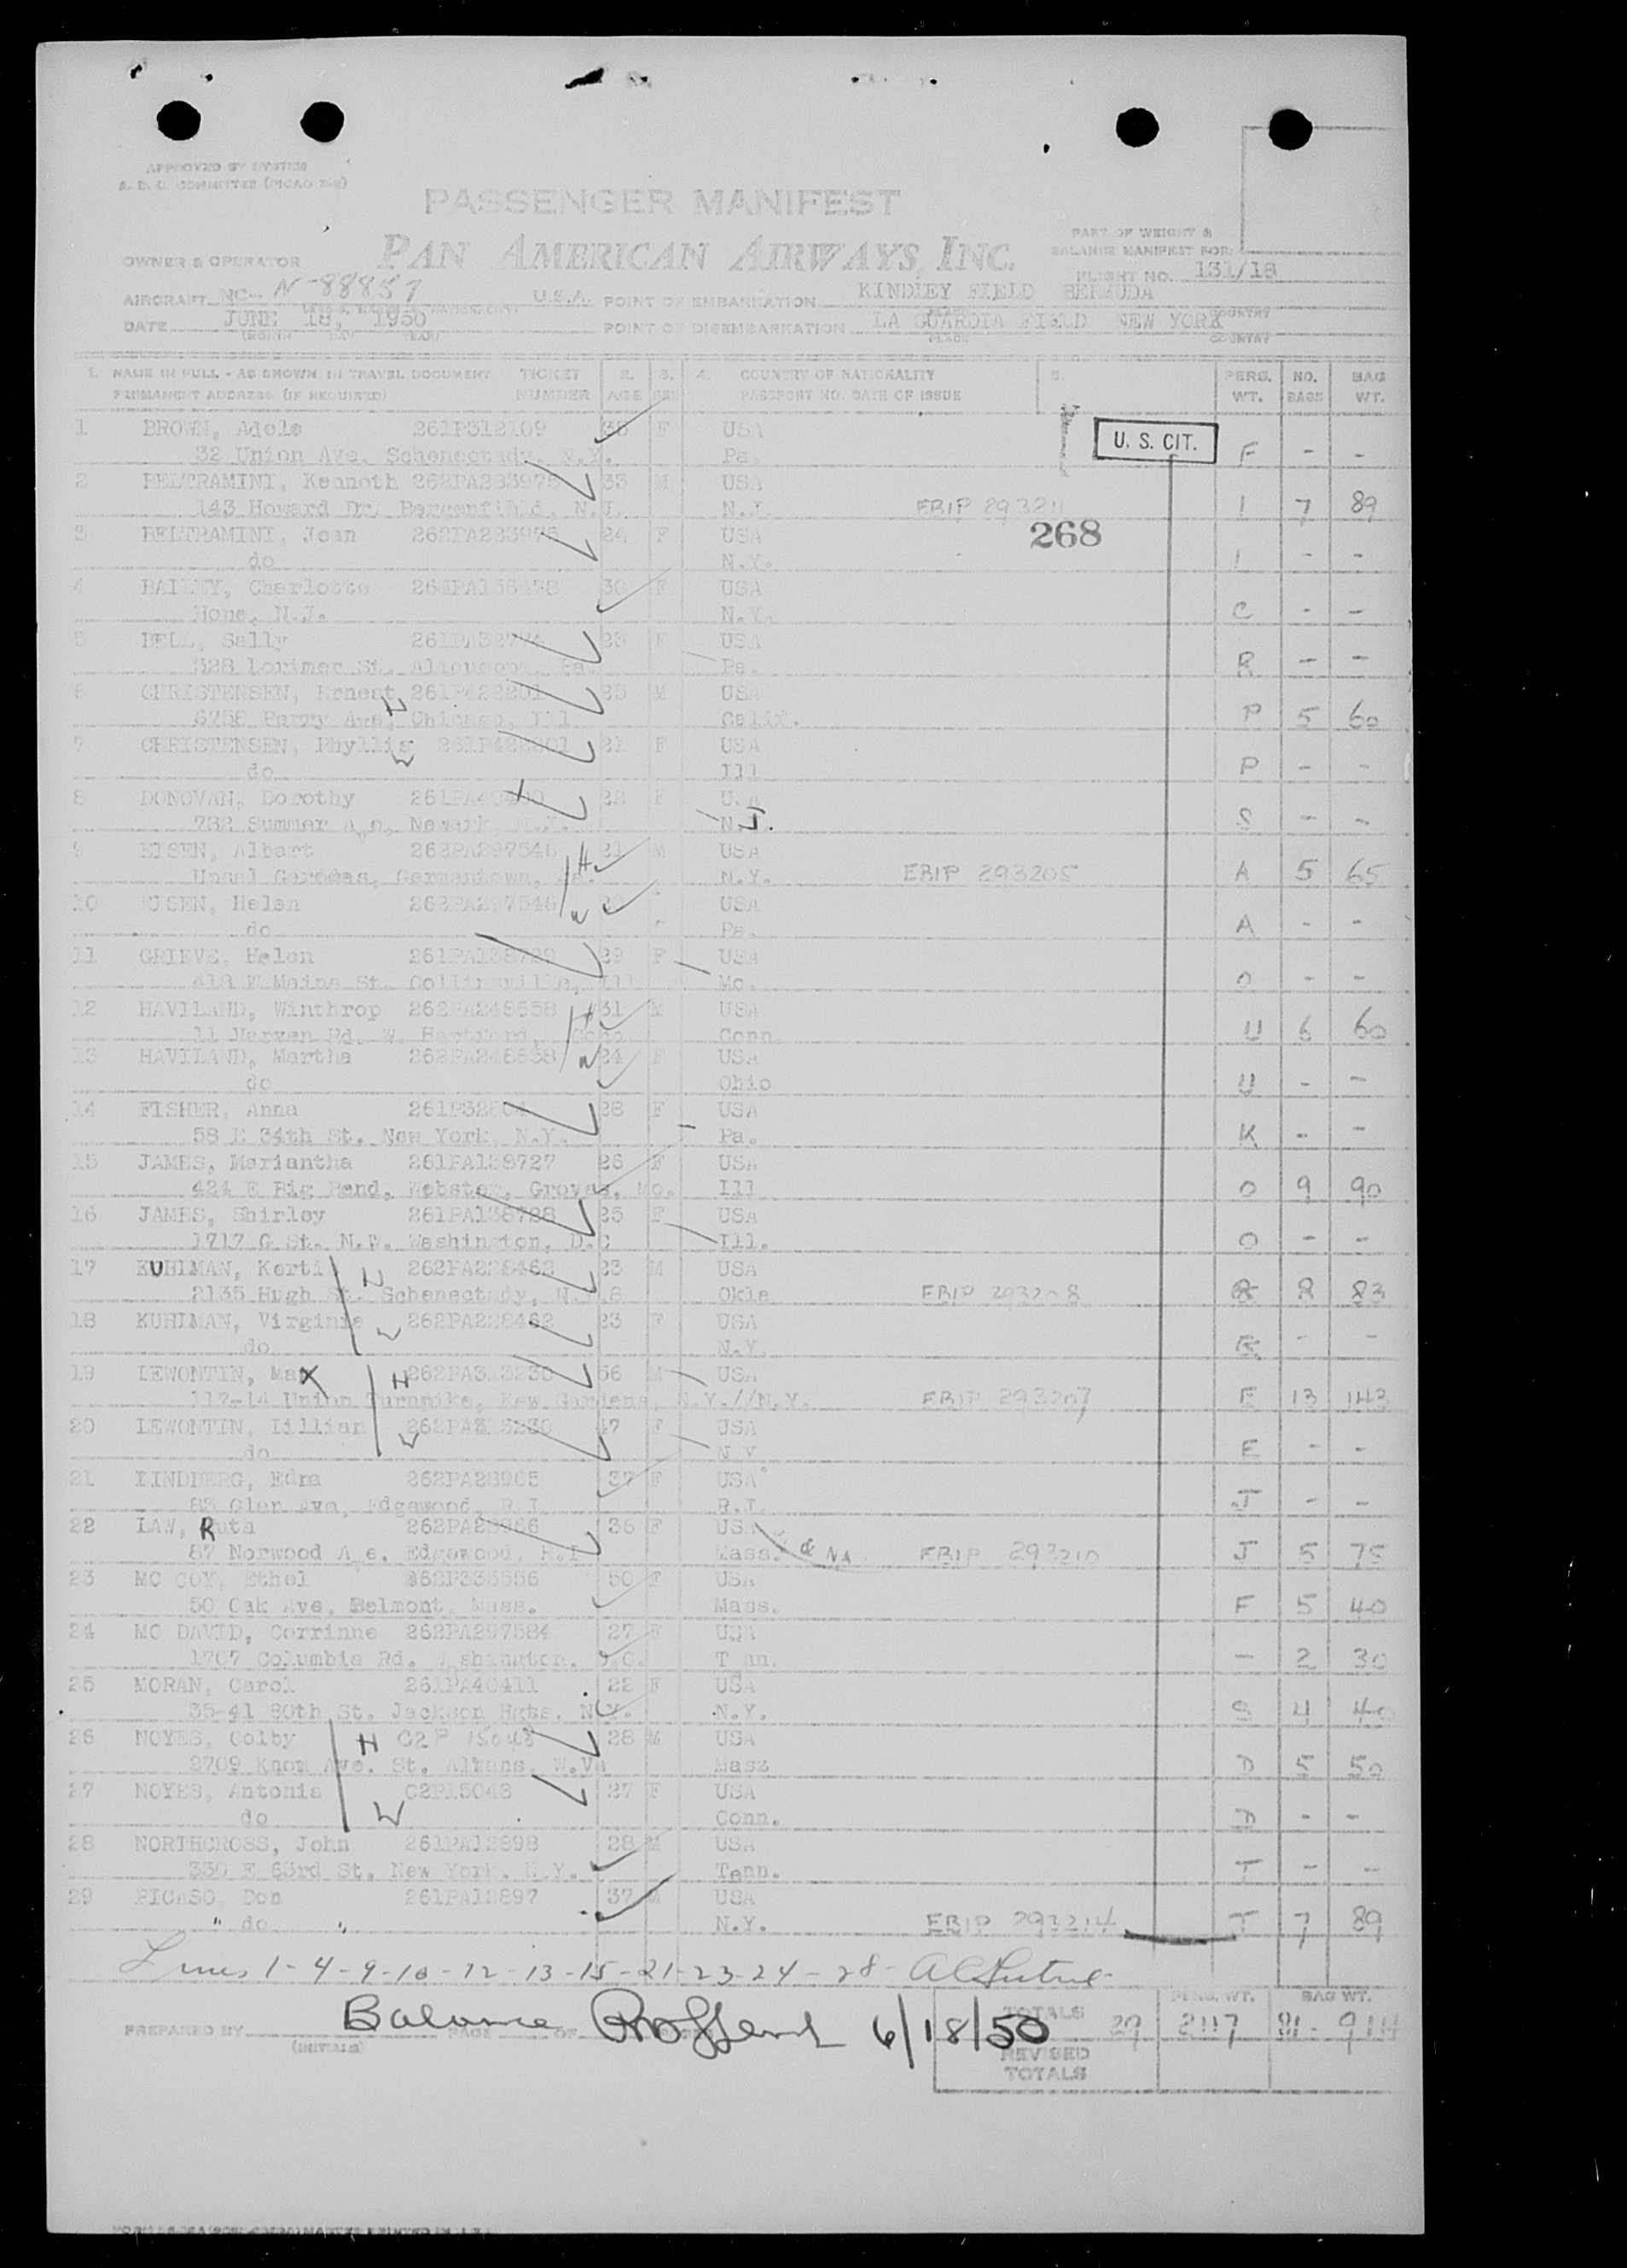 APPROVED BY SYSTEM
PASSENGER MANIFEST
PAN AMERICAN AIRWAYS, INC.
PART OF WEIGHT &
BALANCE MANIFEST FOR:
OWNER & OPERATOR
FLIGHT NO. 131/18
AIRCRAFT NC- N-88857 U.S.A. POINT OF EMBARKATION KINDLEY FIELD BERMUDA
DATE JUNE 18, 1950 POINT OF DISEMBARKATION LA GUARDIA FIELD NEW YORK
(MONTH DAY YEAR) PLACE COUNTRY
1. NAME IN FULL - AS SHOWN IN TRAVEL DOCUMENT TICKET 2. 3. 4. COUNTRY OF NATIONALITY 5. PERS. NO. BAG
PERMANENT ADDRESS (IF REQUIRED) NUMBER AGE SEX PASSPORT NO. DATE OF ISSUE WT. BAGS WT.
U. S. CIT.
1 BROWN, Adele 261P312109 35 F USA
32 Union Ave. Schenectady, N.Y. Pa. F - -
2 BELTRAMINI, Kenneth 262PA283975 33 M USA
143 Howard Dr. Bergenfield, N.J. N.J. EBIP 293211 I 7 89
268
3 BELTRAMINI, Jean 262PA283975 24 F USA
do N.Y. I - -
4 BAILEY, Charlotte 30 F USA
N.J. N.Y. C - -
5 BELL, Sally 23 F USA
328 Lorimer St. Pa. Pa. R - -
6 CHRISTENSEN, Ernest 261P422201 25 M USA
6758 Parry Ave, Chicago, Ill Calif. P 5 60
7 CHRISTENSEN, Phyllis W 261P422201 21 F USA
do Ill P - -
8 DONOVAN, Dorothy 28 F USA
782 Summer Ave, Newark, N.J. N.J. S - -
9 EISEN, Albert 262PA297546 31 H M USA
Upsal Gardens, Germantown, Pa. N.Y. EBIP 293205 A 5 65
10 EISEN, Helen 262PA297546 W USA
do Pa. A - -
11 GRIEVE, Helen 29 F USA
418 E Maine St. Collinsville, Ill Mo. O - -
12 HAVILAND, Winthrop 262PA248658 H 31 M USA
W. Hartford, Conn. U 6 60
13 HAVILAND, Martha 262PA248658 W 24 F USA
do Ohio U - -
14 FISHER, Anna 28 F USA
58 E 34th St. New York, N.Y. Pa. K - -
15 JAMES, Mariantha 261PA138727 26 F USA
424 E Big Bend, Webster, Groves, Mo. Ill O 9 90
16 JAMES, Shirley 261PA138728 25 F USA
1717 G St. N.W. Washington, D.C Ill. O - -
17 KUHLMAN, Kertis H 262PA228462 23 M USA
2135 Hugh St. Schenectady, N.Y.8 Okla EBIP 293208 R 8 83
18 KUHLMAN, Virginia W 262PA228462 23 F USA
do N.Y. R - -
19 LEWONTIN, Max H 262PA313230 56 M USA
117-14 Union Turnpike, Kew Gardens, N.Y.//N.Y. EBIP 293207 E 13 143
20 LEWONTIN, Lillian W 262PA313230 47 F USA
do N.Y E - -
21 LINDBERG, Edra 262PA28965 37 F USA
83 Glen Ave, Edgewood, R.I R.I. J - -
22 LAW, Ruth 262PA28966 36 F USA
87 Norwood Ave. Edgewood, R.I Mass. EBIP 293210 J 5 75
23 MC COY, Ethel 262P335556 50 F USA
50 Oak Ave, Belmont, Mass. Mass. F 5 40
24 MC DAVID, Corrinne 262PA297584 27 F USA
1707 Columbia Rd. Washington, D.C. T nn. - 2 30
25 MORAN, Carol 261PA40411 22 F USA
35-41 80th St. Jackson Hgts. N.Y. N.Y. S 4 40
26 NOYES, Colby H C2P 15048 28 M USA
2709 Knox Ave. St. Albans, W.Va Mass D 5 50
27 NOYES, Antonia W C2P15048 27 F USA
do Conn. D - -
28 NORTHCROSS, John 261PA12898 28 M USA
330 E 63rd St. New York, N.Y. Tenn. T - -
29 PICASO, Don 261PA12897 37 M USA
" do " N.Y. EBIP 293214 T 7 89
Lines 1-4-9-10-12-13-15-21-23-24-28-
PREPARED BY Balance PAGE OF 6/18/50
(INITIALS)
PERS. WT. BAG WT.
TOTALS 29 2117 81 - 914
REVISED
TOTALS